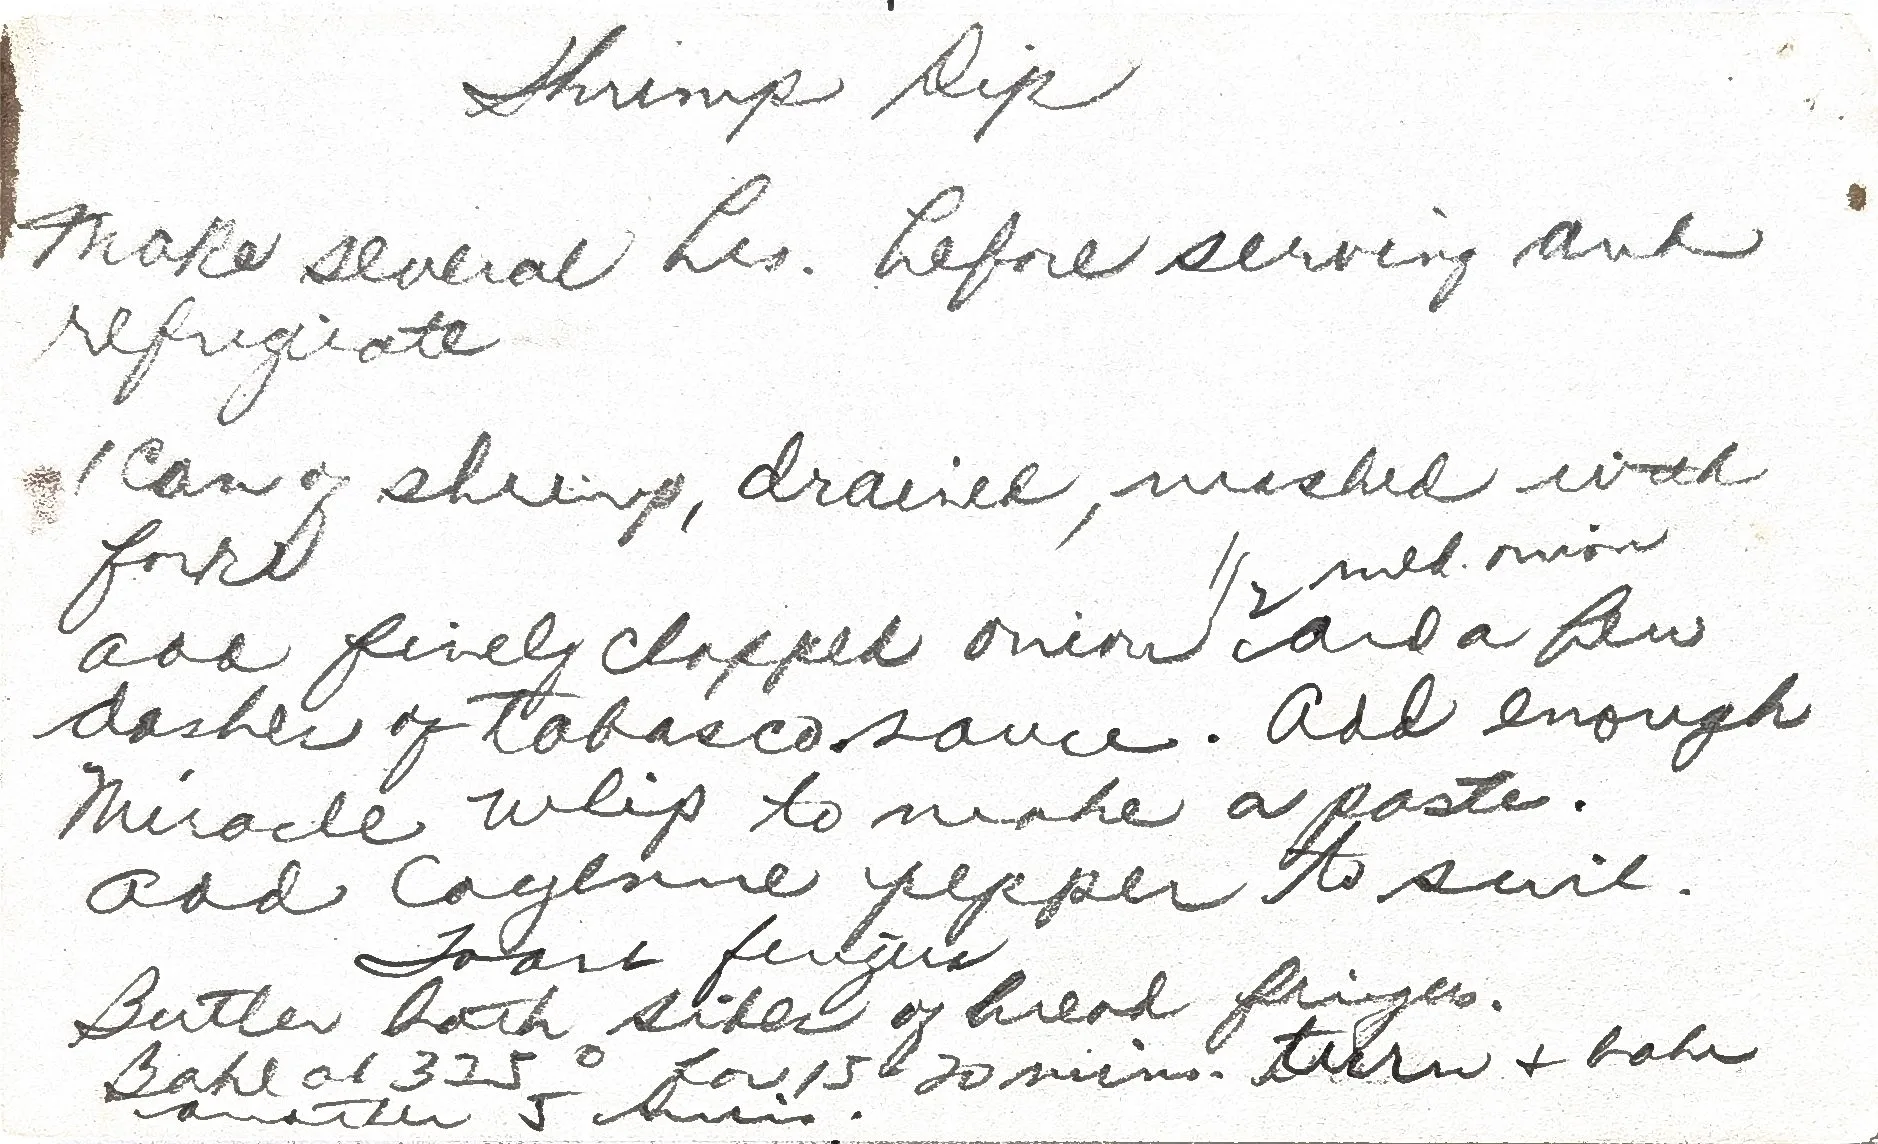 Shrimp Dip
Make several hrs. before serving and
refrigerate
1 Can of shrimp, drained, mashed with
fork
add finely chopped onion ½ med. onion and a few
dashes of Tabasco sauce. Add enough
Miracle Whip to make a paste.
Add Cayenne pepper to suit.
Toast fingers
Butter both sides of bread fingers.
Bake at 325° for 15 20 mins. turn + bake
another 5 mins.